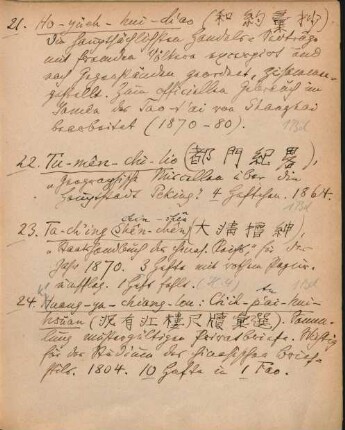 21. Ho-yüeh-hui-ch'ao (和約彙抄).
Die hauptsächlichsten Handels-Verträge
mit fremden Völkern excerpiert und
nach Gegenständen geordnet, zusammen-
gestellt. Zum officiellen Gebrauch im
Yamen des Tao-t'ai von Shanghai
bearbeitet (1870-80).
22. Tu-mên-chi-lio (都門紀畧),
"Geographische Miscellen über die
Hauptstadt Peking." 4 Heftchen. 1864.
23. Ta-ch'ing (大清搢紳)
"Staatshandbuch des chines. Reichs," für das
Jahr 1870. 3 Hefte mit rothem Papier.
1 Heft fehlt.
24. Huang-ya-chiang-lou: Ch'ih-p'ai-hui-
hsüan (江樓尺牘彙選).
lung mustergiltiger Privatbriefe. Wichtig
für das Studium des chinesischen Brief-
stils. 1804. 10 Hefte in 1 Tao.